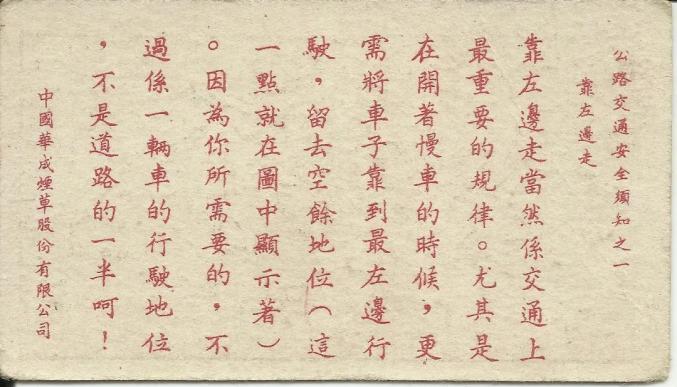 公路交通安全須知之一
靠左邊走
靠左邊走當然係交通上
最重要的規律。尤其是
在開著慢車的時候，更
需將車子靠到最左邊行
駛，留去空餘地位（這
一點就在圖中顯示著）
。因為你所需要的，不
過係一輛車的行駛地位
，不是道路的一半呵！
中國華成煙草股份有限公司